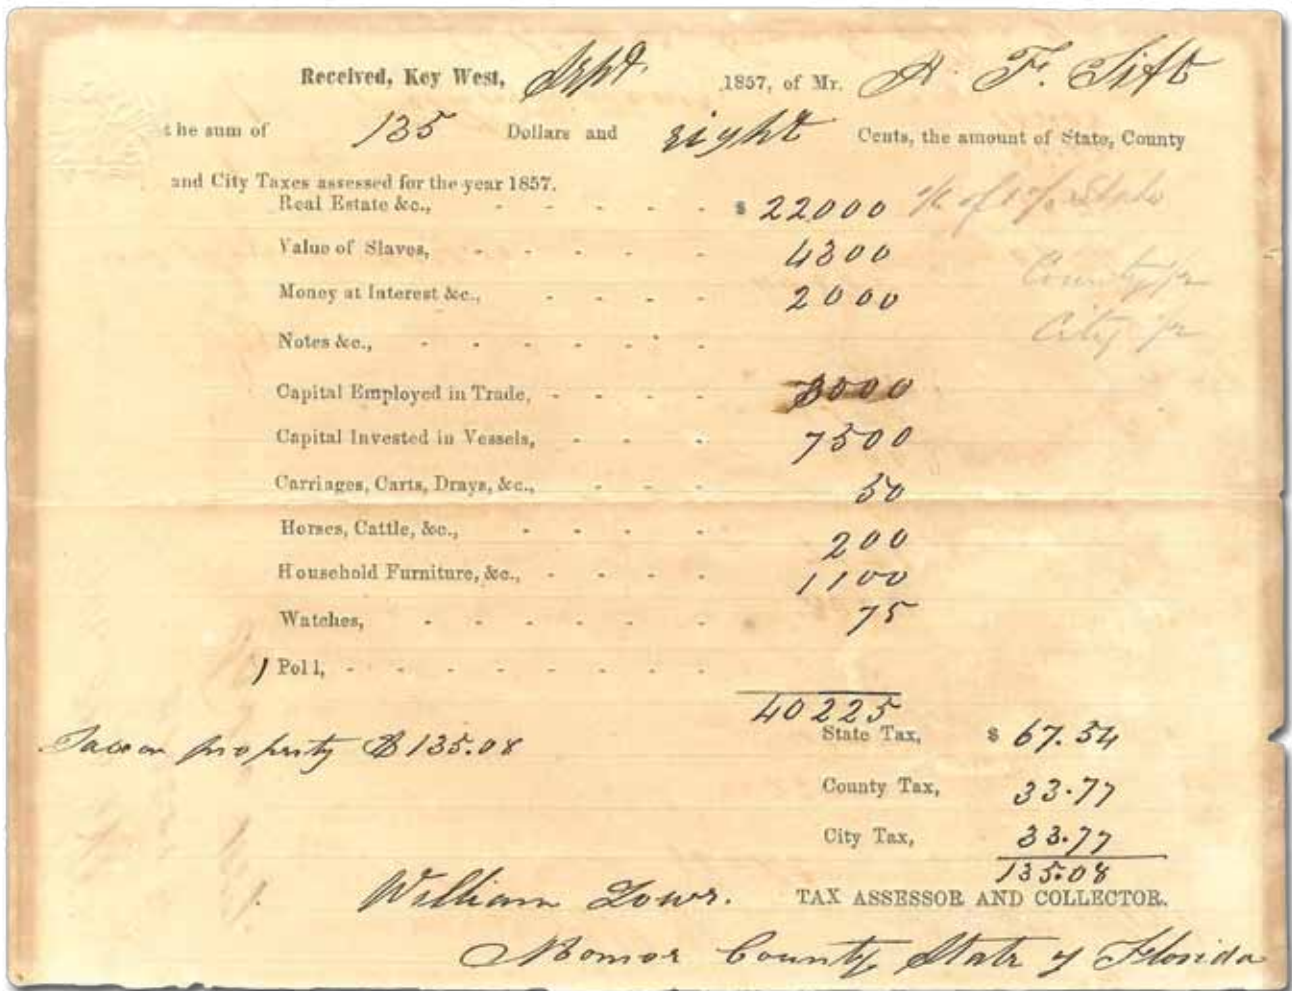 Received, Key West, Sept. 1857, of Mr. A. F. Tift
the sum of 135 Dollars and eight Cents, the amount of State, County
and City Taxes assessed for the year 1857.
Real Estate &c., - - - - - $ 22000 of 1 % State
Value of Slaves, - - - - - 4300
Money at Interest &c., - - - - 2000 County
Notes &c., - - - - - - - City
Capital Employed in Trade, - - - - 3000
Capital Invested in Vessels, - - - 7500
Carriages, Carts, Drays, &c., - - - 50
Horses, Cattle, &c., - - - - - 200
Household Furniture, &c., - - - - 1100
Watches, - - - - - - 75
1 Poll, - - - - - - - -
40225
State Tax, $ 67.54
Tax on property $135.08
County Tax, 33.77
City Tax, 33.77
135.08
William TAX ASSESSOR AND COLLECTOR.
County State of Florida